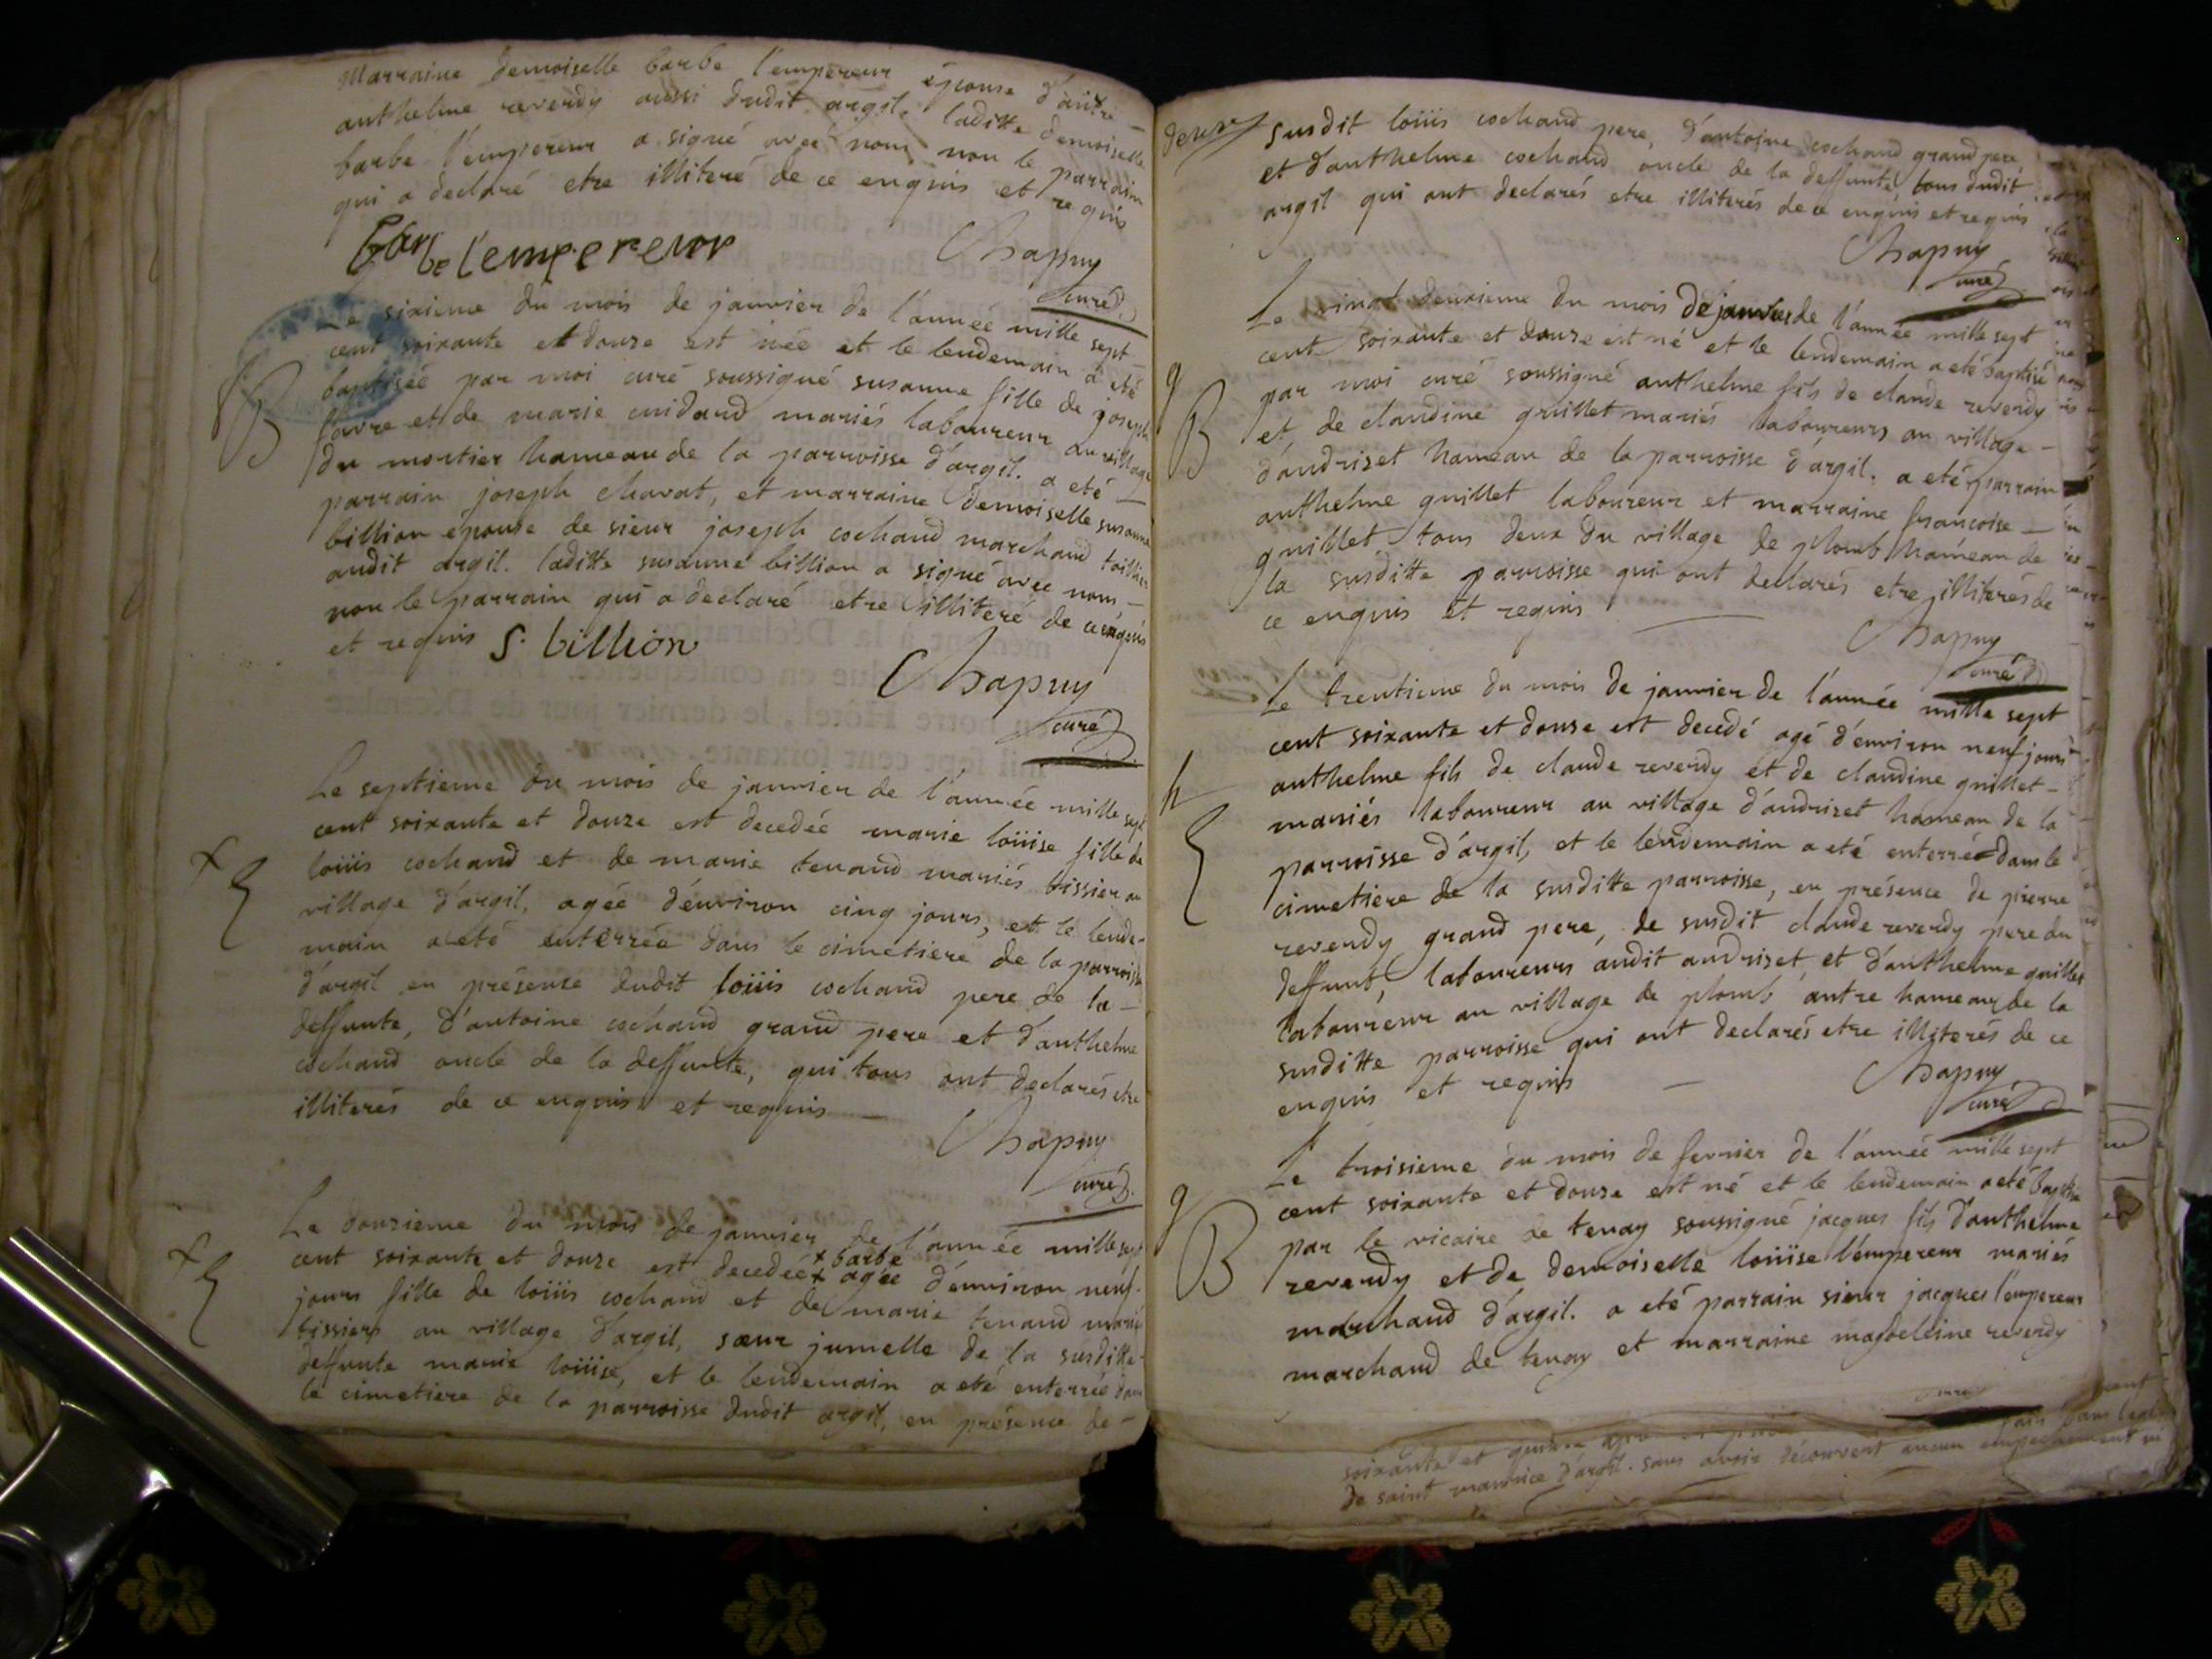 Marraine demoiselle barbe l'empereur épouse d'autre
anthelme reverdy aussi dudit argil. laditte demoiselle
barbe l'empereur a signé avec nous non le parrain
qui a declaré etre illiteré de ce enquis et requis
Barbe l'empereur
Chapuy
curé
Le sixieme du mois de janvier de l'année mille sept
cent soixante et douze est née et le lendemain a eté
baptisée par moi curé soussigné susanne fille de joseph
favre et de marie cuidard mariés laboureur au village
du mortier hameau de la parroisse d'argil. a eté
parrain joseph charat, et marraine demoiselle susanne
billion épouse de sieur joseph cochand marchand toillier
audit argil. laditte susanne billion a signé avec nous
non le parrain qui a declaré etre illiteré de ce enquis
et requis S. billion
Chapuy
curé
Le septieme du mois de janvier de l'année mille sept
cent soixante et douze est decedée marie loüise fille de
loüis cochand et de marie tenand mariés tissier au
village d'argil, agée d'environ cinq jours, et le lende-
main a eté enterrée dans le cimetiere de la parroisse
d'argil en présence dudit loüis cochand pere de la
deffunte, d'antoine cochand grand pere et d'anthelme
cochand oncle de la deffunte, qui tous ont declarés etre
illiterés de ce enquis et requis
Chapuy
curé
Le douzieme du mois de janvier de l'année mille sept
cent soixante et douze est decedée + barbe + agée d'environ neuf
jours fille de loüis cochand et de marie tenand mariés
tissiers au village d'argil, sœur jumelle de la susditte
deffunte marie loüise, et le lendemain a eté enterrée dans
le cimetiere de la parroisse dudit argil, en présence de
susdit loüis cochand pere, d'antoine cochand grand pere
et d'anthelme cochand oncle de la deffunte tous dudit
argil qui ont declarés etre illiterés de ce enquis et requis
Chapuy
curé
Le vingt deuxieme du mois de janvier de l'année mille sept
cent soixante et douze est né et le lendemain a eté baptisé
par moi curé soussigné anthelme fils de claude reverdy
et de claudine guillet mariés laboureurs au village
d'andriset hameau de la parroisse d'argil. a eté parrain
anthelme guillet laboureur et marraine francoise
guillet tous deux du village de plomb hameau de
la susditte parroisse qui ont declarés etre illiterés de
ce enquis et requis
Chapuy
curé
Le trentieme du mois de janvier de l'année mille sept
cent soixante et douze est decedé agé d'environ neuf jours
anthelme fils de claude reverdy et de claudine guillet
mariés laboureur au village d'andriset hameau de la
parroisse d'argil, et le lendemain a eté enterré dans le
cimetiere de la susditte parroisse, en présence de pierre
reverdy grand pere, de susdit claude reverdy pere du
deffunt, laboureurs audit andriset, et d'anthelme guillet
laboureur au village de plomb autre hameau de la
susditte parroisse qui ont declarés etre illiterés de ce
enquis et requis
Chapuy
curé
Le troisieme du mois de fevrier de l'année mille sept
cent soixante et douze est né et le lendemain a eté baptisé
par le vicaire de tenay soussigné jacques fils d'anthelme
reverdy et de demoiselle loüise l'empereur mariés
marchand d'argil. a eté parrain sieur jacques l'empereur
marchand de tenay et marraine magdeleine reverdy
soixante et quinze
de saint maurice d'argil. sans avoir découvert aucun empechement ni